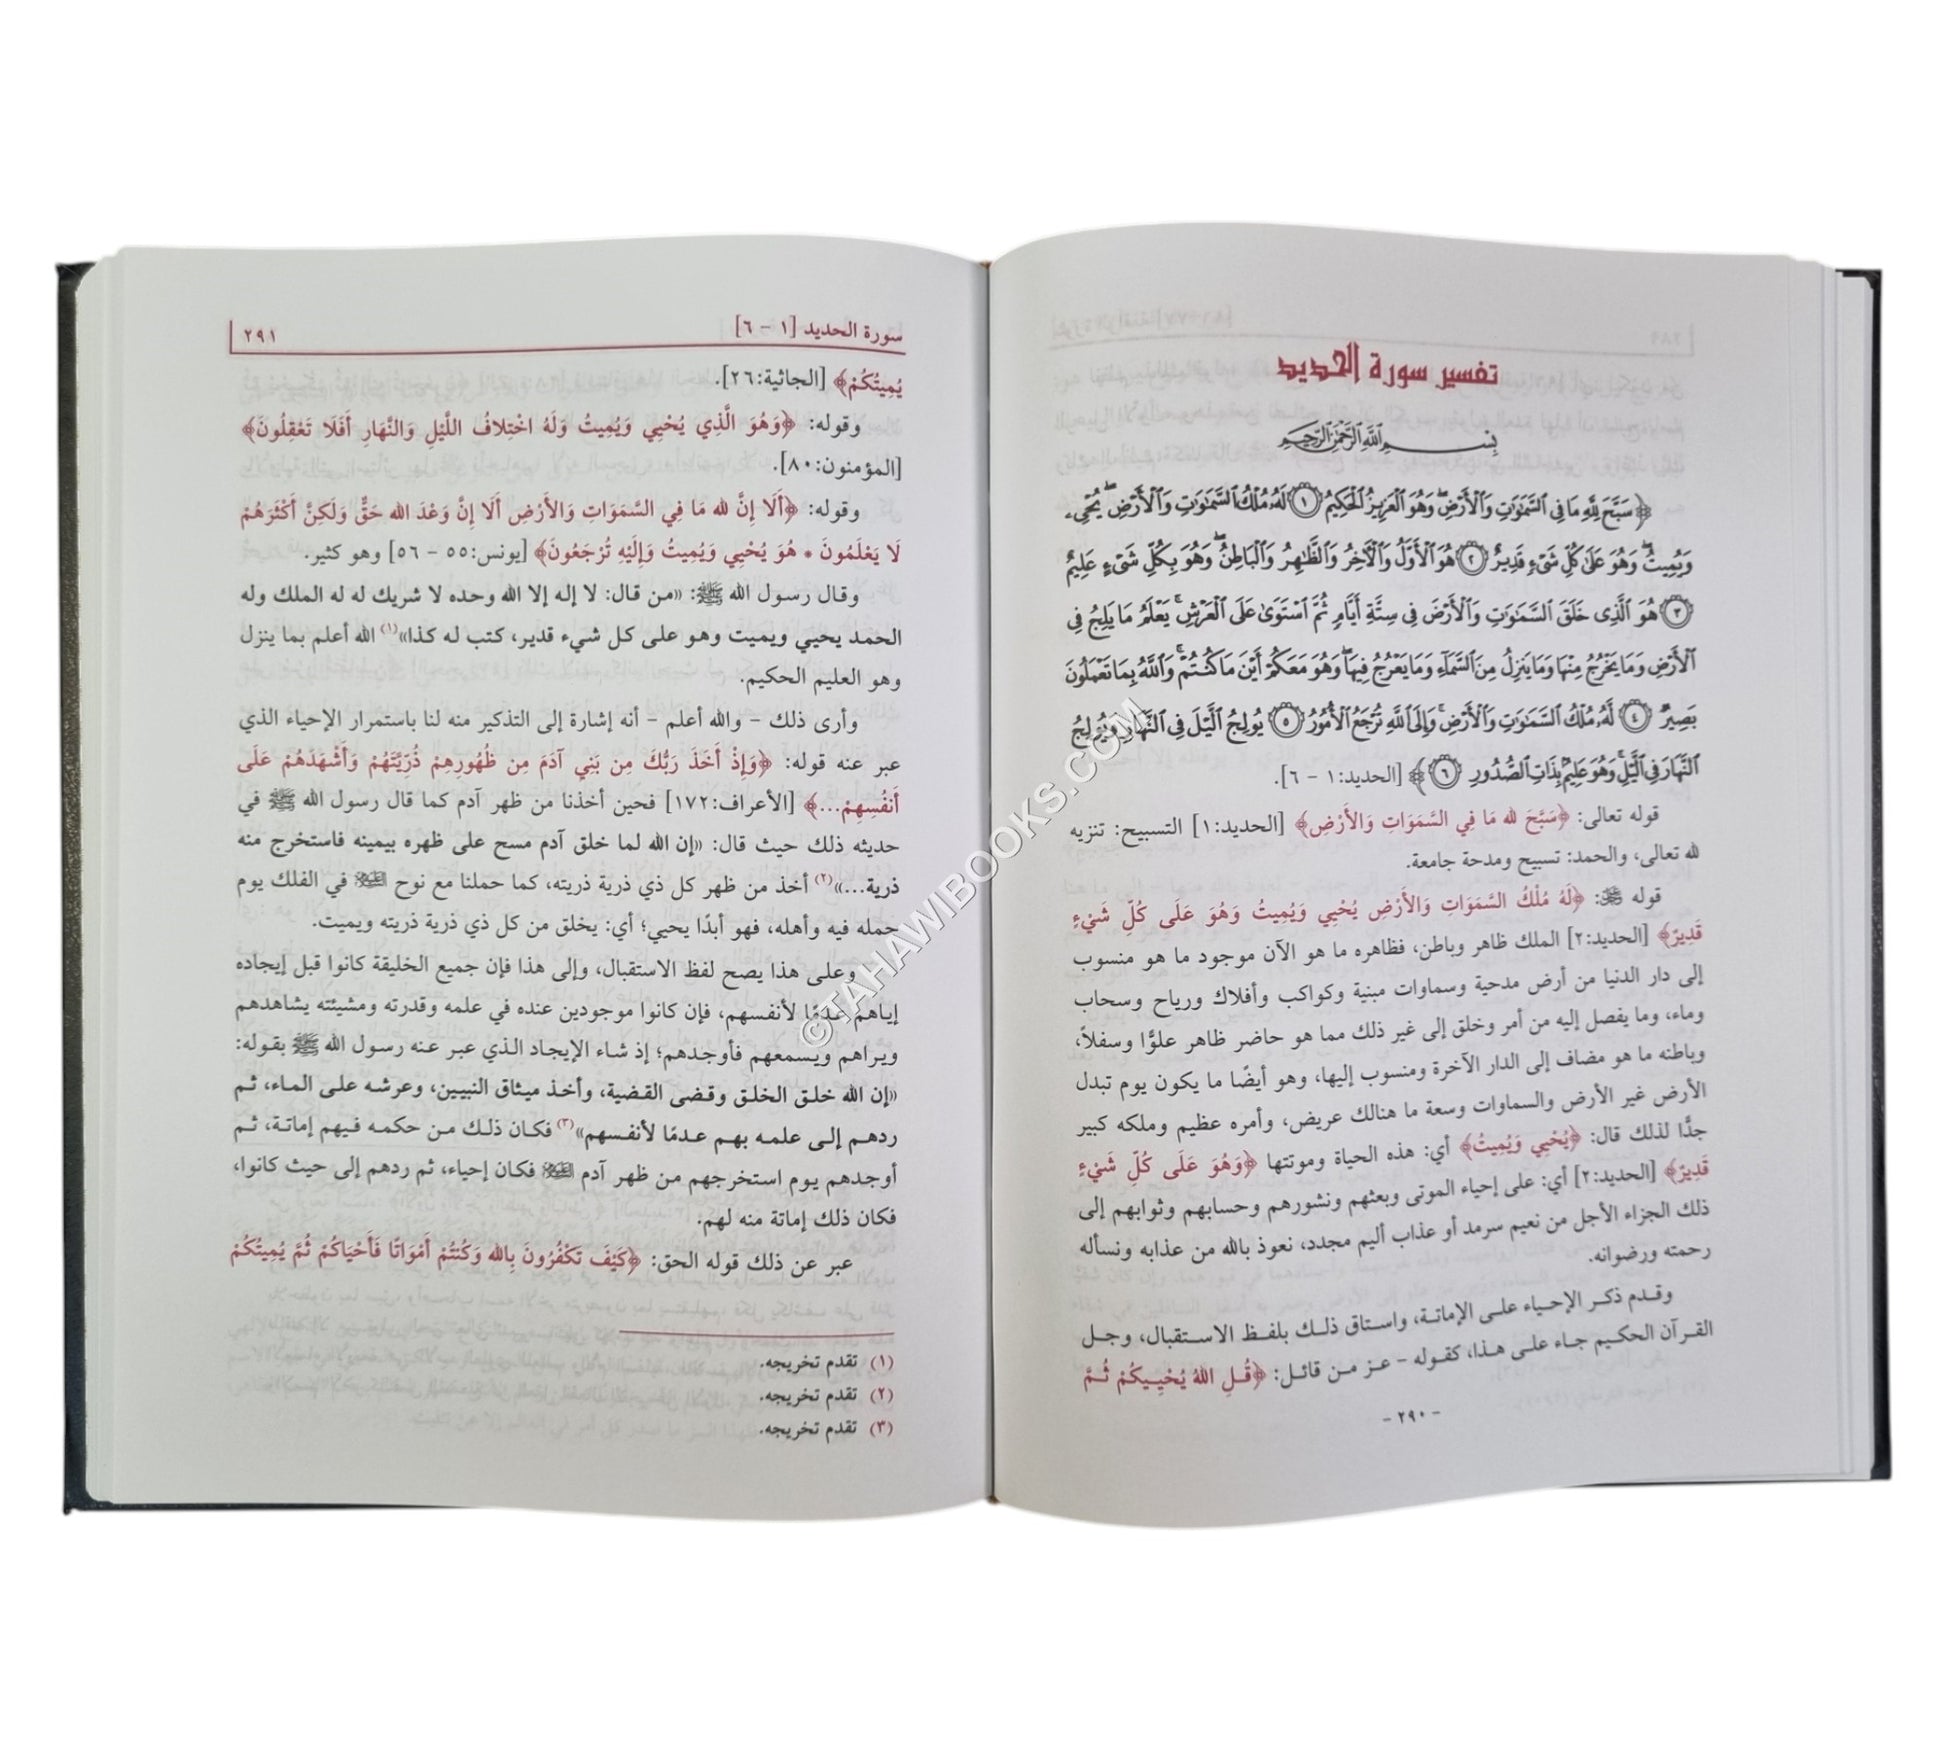 تفسير سورة الحديد
بِسْمِ اللَّهِ الرَّحْمَٰنِ الرَّحِيمِ
﴿سَبَّحَ لِلَّهِ مَا فِي السَّمَٰوَٰتِ وَالْأَرْضِ ۖ وَهُوَ الْعَزِيزُ الْحَكِيمُ ۝١ لَهُۥ مُلْكُ السَّمَٰوَٰتِ وَالْأَرْضِ ۖ يُحْيِۦ
وَيُمِيتُ ۖ وَهُوَ عَلَىٰ كُلِّ شَيْءٍ قَدِيرٌ ۝٢ هُوَ الْأَوَّلُ وَالْآخِرُ وَالظَّٰهِرُ وَالْبَاطِنُ ۖ وَهُوَ بِكُلِّ شَيْءٍ عَلِيمٌ
۝٣ هُوَ الَّذِي خَلَقَ السَّمَٰوَٰتِ وَالْأَرْضَ فِي سِتَّةِ أَيَّامٍ ثُمَّ اسْتَوَىٰ عَلَى الْعَرْشِ ۚ يَعْلَمُ مَا يَلِجُ فِي
الْأَرْضِ وَمَا يَخْرُجُ مِنْهَا وَمَا يَنزِلُ مِنَ السَّمَاءِ وَمَا يَعْرُجُ فِيهَا ۖ وَهُوَ مَعَكُمْ أَيْنَ مَا كُنتُمْ ۚ وَاللَّهُ بِمَا تَعْمَلُونَ
بَصِيرٌ ۝٤ لَهُۥ مُلْكُ السَّمَٰوَٰتِ وَالْأَرْضِ ۚ وَإِلَى اللَّهِ تُرْجَعُ الْأُمُورُ ۝٥ يُولِجُ اللَّيْلَ فِي النَّهَارِ وَيُولِجُ
النَّهَارَ فِي اللَّيْلِ ۚ وَهُوَ عَلِيمٌۢ بِذَاتِ الصُّدُورِ ۝٦﴾ [الحديد:١ - ٦].
قوله تعالى: ﴿سَبَّحَ لله مَا فِي السَّمَوَاتِ وَالأَرْضِ﴾ [الحديد:١] التسبيح: تنزيه
لله تعالى، والحمد: تسبيح ومدحة جامعة.
قوله ﷺ: ﴿لَهُ مُلْكُ السَّمَوَاتِ وَالأَرْضِ يُحْيِي وَيُمِيتُ وَهُوَ عَلَى كُلِّ شَيْءٍ
قَدِيرٌ﴾ [الحديد:٢] الملك ظاهر وباطن، فظاهره ما هو الآن موجود ما هو منسوب
إلى دار الدنيا من أرض مدحية وسماوات مبنية وكواكب وأفلاك ورياح وسحاب
وماء، وما يفصل إليه من أمر وخلق إلى غير ذلك مما هو حاضر ظاهر علوًّا وسفلاً،
وباطنه ما هو مضاف إلى الدار الآخرة ومنسوب إليها، وهو أيضًا ما يكون يوم تبدل
الأرض غير الأرض والسماوات وسعة ما هنالك عريض، وأمره عظيم وملكه كبير
جدًّا لذلك قال: ﴿يُحْيِي وَيُمِيتُ﴾ أي: هذه الحياة وموتتها ﴿وَهُوَ عَلَى كُلِّ شَيْءٍ
قَدِيرٌ﴾ [الحديد:٢] أي: على إحياء الموتى وبعثهم ونشورهم وحسابهم وثوابهم إلى
ذلك الجزاء الأجل من نعيم سرمد أو عذاب أليم مجدد، نعوذ بالله من عذابه ونسأله
رحمته ورضوانه.
وقدم ذكر الإحياء على الإماتة، واستاق ذلك بلفظ الاستقبال، وجل
القرآن الحكيم جاء على هذا، كقوله - عز من قائل: ﴿قُلِ اللهُ يُحْيِيكُمْ ثُمَّ
- ٢٩٠ -
سورة الحديد [١ - ٦]
٢٩١
يُمِيتُكُمْ﴾ [الجاثية:٢٦].
وقوله: ﴿وَهُوَ الَّذِي يُحْيِي وَيُمِيتُ وَلَهُ اخْتِلافُ اللَّيْلِ وَالنَّهَارِ أَفَلَا تَعْقِلُونَ﴾
[المؤمنون:٨٠].
وقوله: ﴿أَلَا إِنَّ لله مَا فِي السَّمَوَاتِ وَالأَرْضِ أَلَا إِنَّ وَعْدَ الله حَقٌّ وَلَكِنَّ أَكْثَرَهُمْ
لَا يَعْلَمُونَ * هُوَ يُحْيِي وَيُمِيتُ وَإِلَيْهِ تُرْجَعُونَ﴾ [يونس:٥٥ - ٥٦] وهو كثير.
وقال رسول الله ﷺ: «من قال: لا إله إلا الله وحده لا شريك له له الملك وله
الحمد يحيي ويميت وهو على كل شيء قدير، كتب له كذا»(١) الله أعلم بما ينزل
وهو العليم الحكيم.
وأرى ذلك - والله أعلم - أنه إشارة إلى التذكير منه لنا باستمرار الإحياء الذي
عبر عنه قوله: ﴿وَإِذْ أَخَذَ رَبُّكَ مِن بَنِي آدَمَ مِن ظُهُورِهِمْ ذُرِّيَّتَهُمْ وَأَشْهَدَهُمْ عَلَى
أَنفُسِهِمْ...﴾ [الأعراف:١٧٢] فحين أخذنا من ظهر آدم كما قال رسول الله ﷺ في
حديثه ذلك حيث قال: «إن الله لما خلق آدم مسح على ظهره بيمينه فاستخرج منه
ذرية...»(٢) أخذ من ظهر كل ذي ذرية ذريته، كما حملنا مع نوح ‏عليه السلام في الفلك يوم
حمله فيه وأهله، فهو أبدًا يحيي؛ أي: يخلق من كل ذي ذرية ذريته ويميت.
وعلى هذا يصح لفظ الاستقبال، وإلى هذا فإن جميع الخليقة كانوا قبل إيجاده
إياهم عدمًا لأنفسهم، فإن كانوا موجودين عنده في علمه وقدرته ومشيئته يشاهدهم
ويراهم ويسمعهم فأوجدهم؛ إذ شاء الإيجاد الذي عبر عنه رسول الله ﷺ بقوله:
«إن الله خلق الخلق وقضى القضية، وأخذ ميثاق النبيين، وعرشه على الماء، ثم
ردهم إلى علمه بهم عدمًا لأنفسهم»(٣) فكان ذلك من حكمه فيهم إماتة، ثم
أوجدهم يوم استخرجهم من ظهر آدم عليه السلام فكان إحياء، ثم ردهم إلى حيث كانوا،
فكان ذلك إماتة منه لهم.
عبر عن ذلك قوله الحق: ﴿كَيْفَ تَكْفُرُونَ بِالله وَكُنتُمْ أَمْوَاتًا فَأَحْيَاكُمْ ثُمَّ يُمِيتُكُمْ
(١) تقدم تخريجه.
(٢) تقدم تخريجه.
(٣) تقدم تخريجه.
©TAHAWIBOOKS.COM